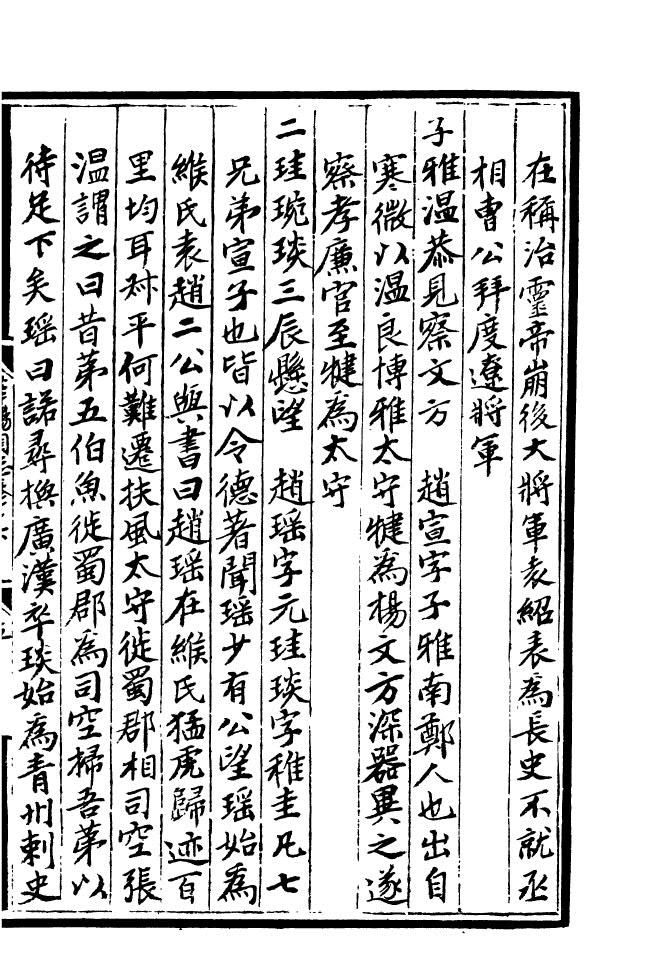 在稱治靈帝崩後大將軍袁紹表為長史不就丞
相曹公拜度遼將軍
子雅温恭見察文方　趙宣字子雅南鄭人也出自
寒微以温良博雅太守犍為楊文方深器異之遂
察孝廉官至犍為太守
二珪琬琰三辰懸望　趙瑶字元珪琰字稚圭凡七
兄弟宣子也皆以令德著聞瑶少有公望瑶始為
緱氏袁趙二公與書曰趙瑶在緱氏猛虎歸迹百
里均耳尉平何難遷扶風太守徙蜀郡相司空張
温謂之曰昔第五伯魚徙蜀郡為司空掃吾第以
待足下矣瑶曰諾尋換廣漢卒琰始為青州刺史